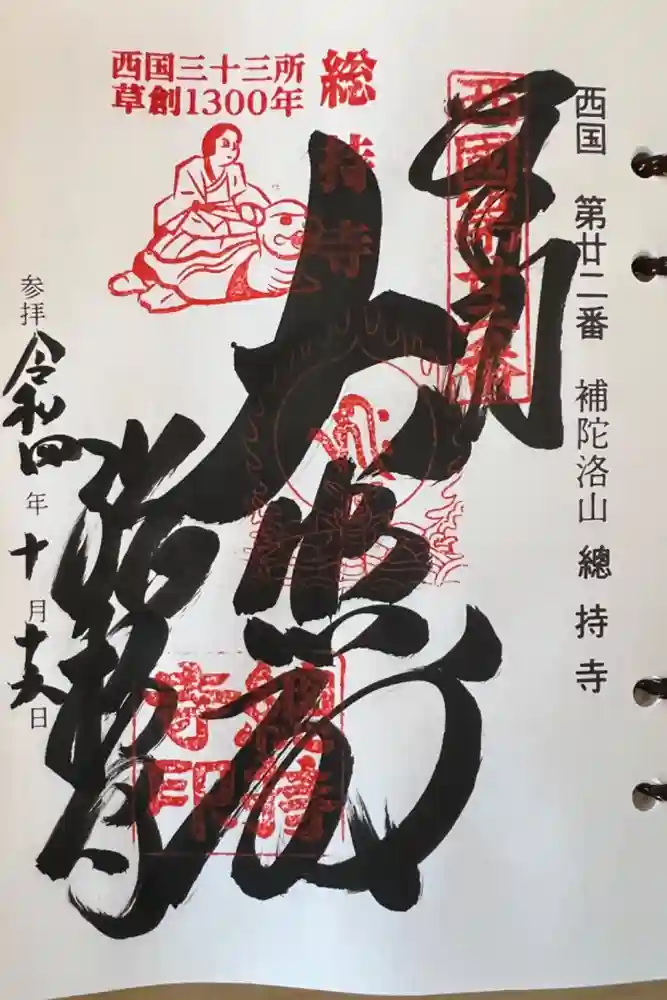 西国 第廿二番 補陀洛山 總持寺
奉拝
西國第廿二番
大悲殿
総持寺
西国三十三所
草創1300年
總持寺印
総持寺
参拝 令和四年十月十六日